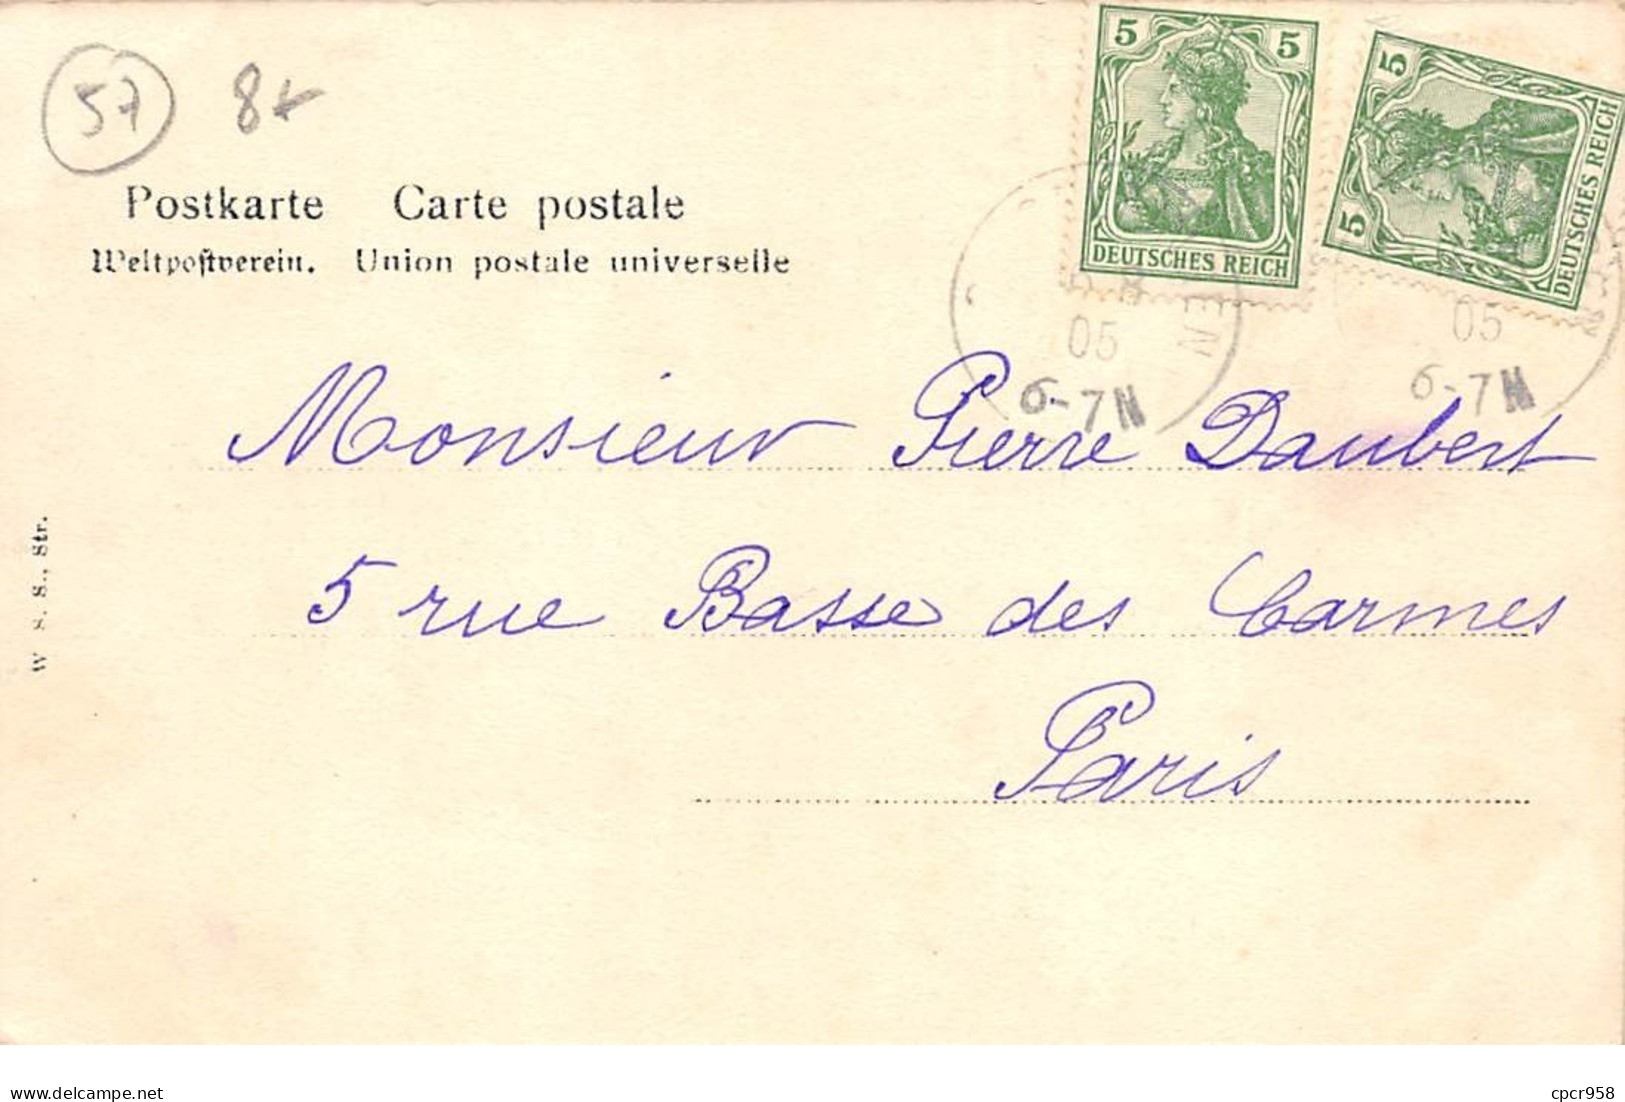 57 8
5 5
DEUTSCHES REICH
5 5
DEUTSCHES REICH
Postkarte Carte postale
Weltpostverein. Union postale universelle
05
6-7N
05
6-7N
Monsieur Pierre Daubert
5 rue Basse des Carmes
Paris
W. S. S., Str.
www.delcampe.net
cpcr958